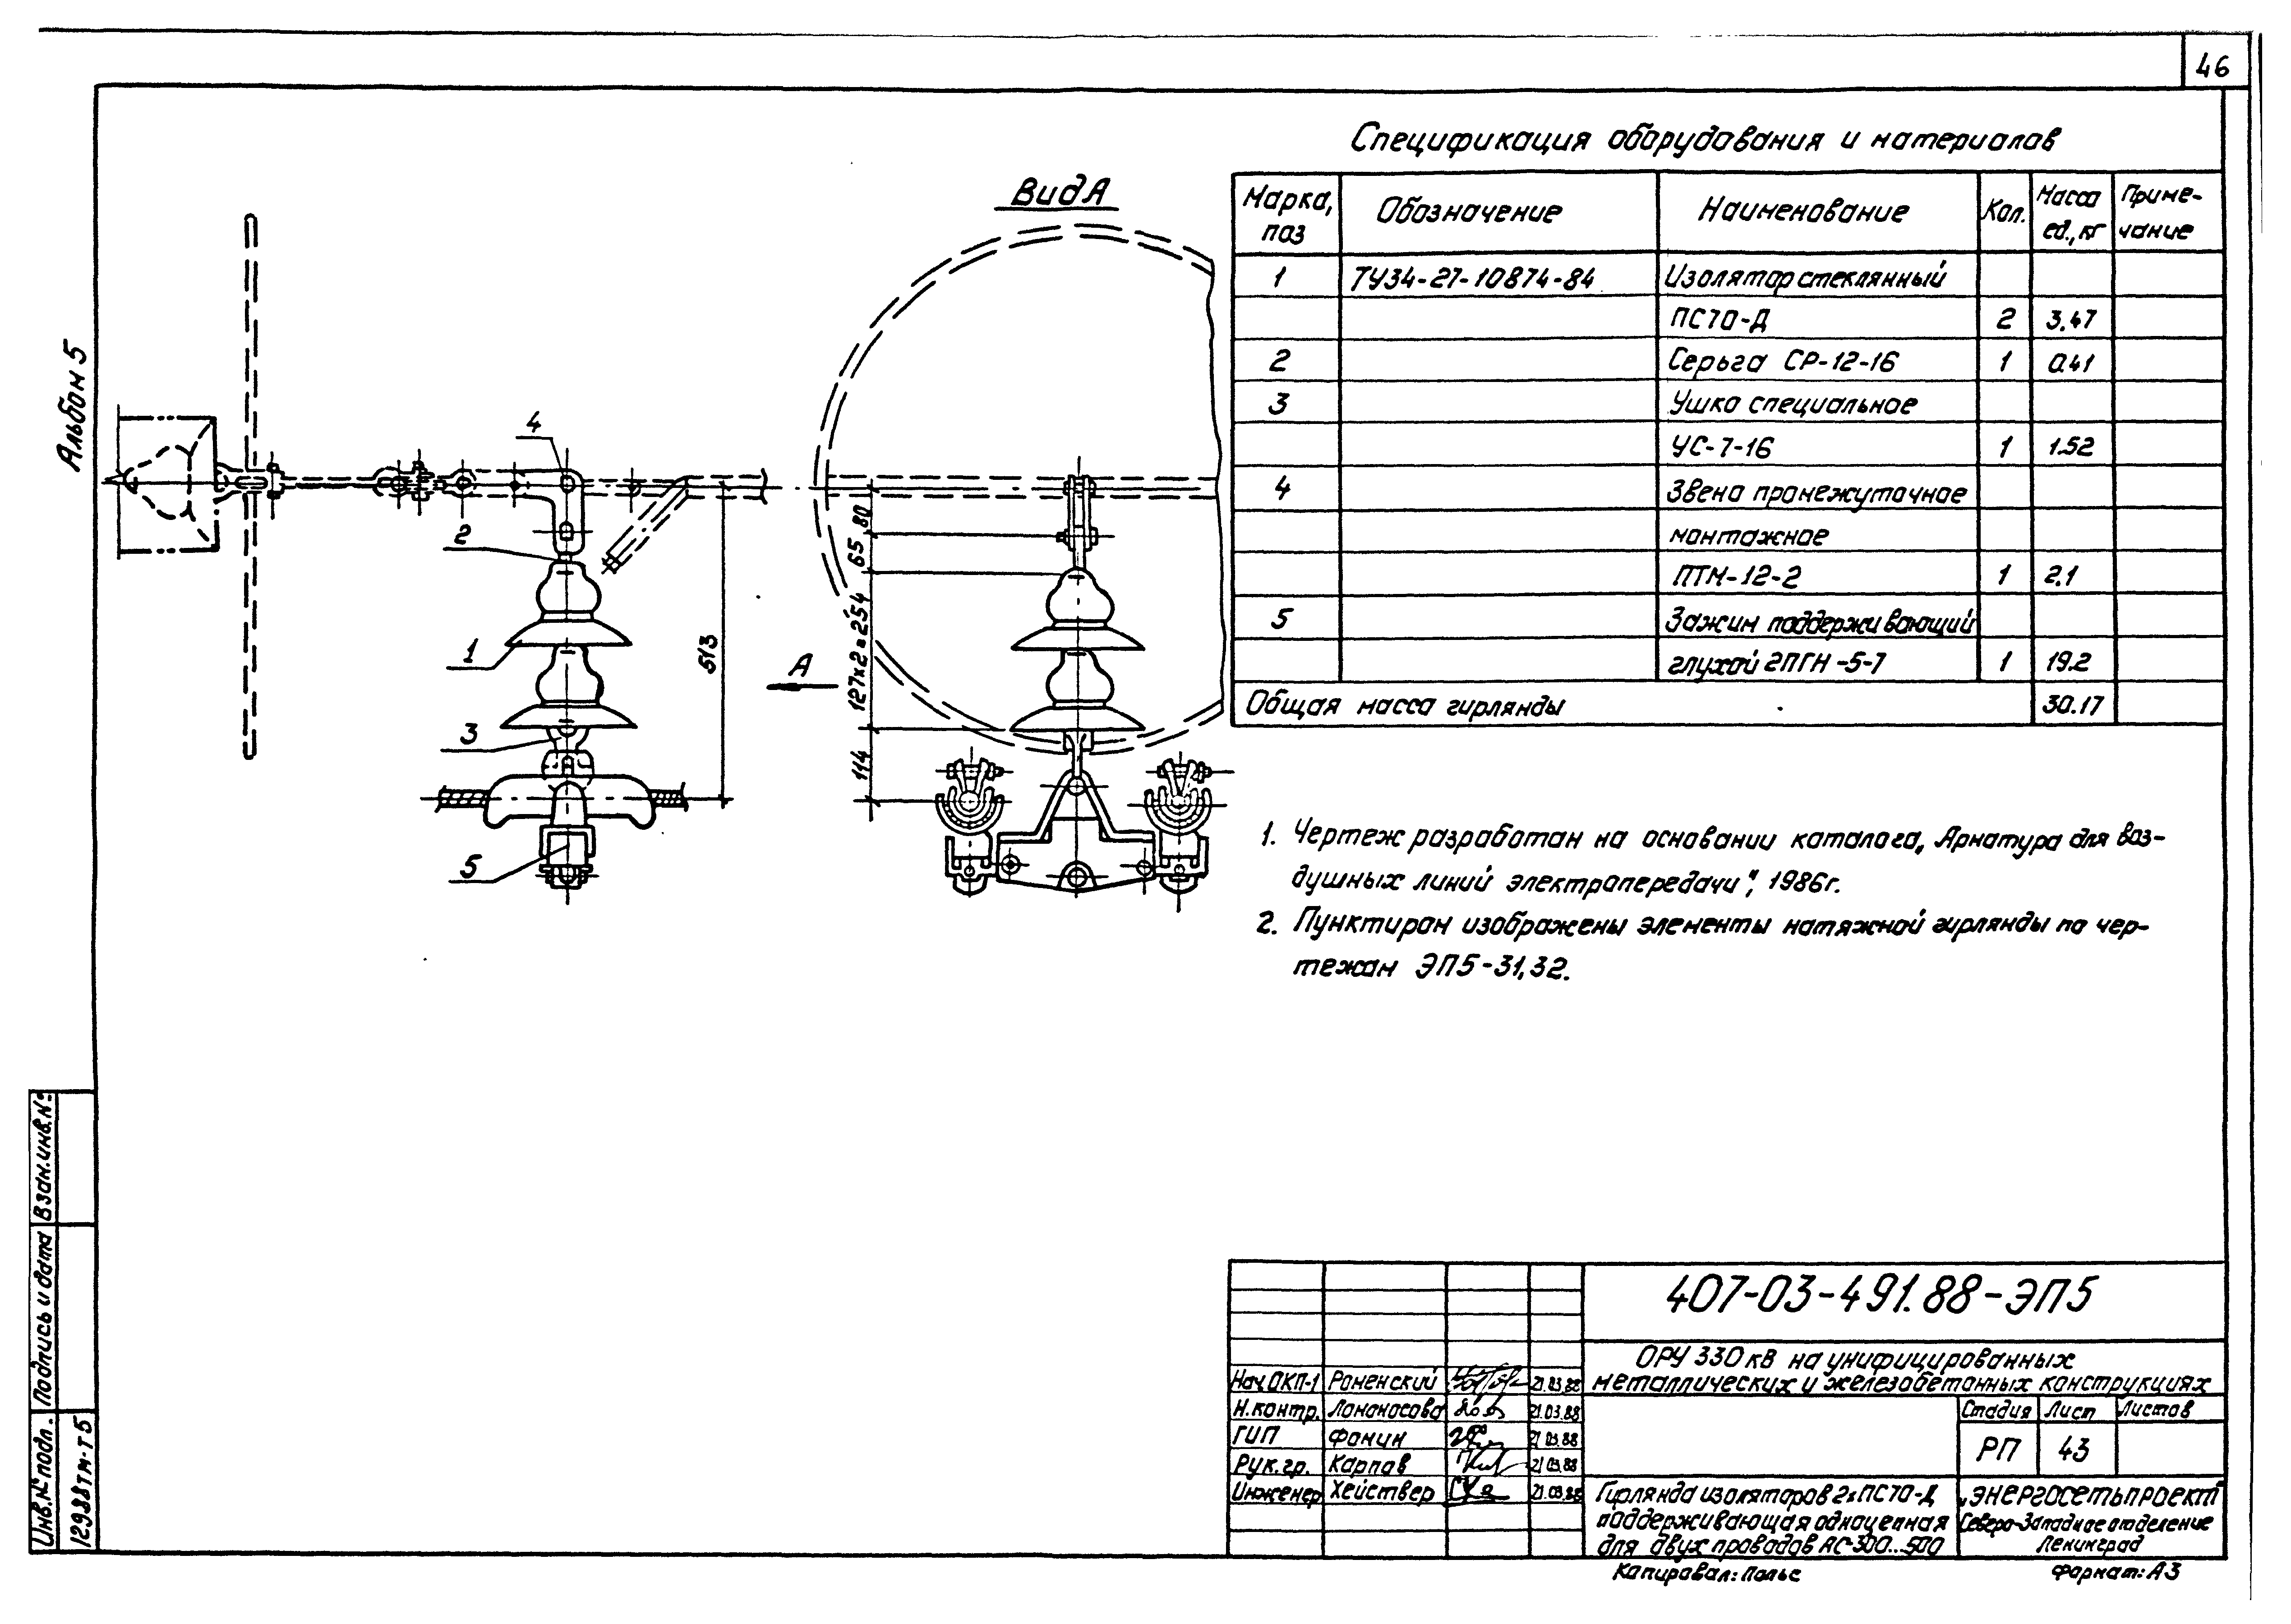 46
Альбом 5
Вид А
4
2
1
3
5
А
513
80
65
127x2=254
114
Спецификация оборудования и материалов
Марка, поз | Обозначение | Наименование | Кол. | Масса ед., кг | Приме- чание
1 | ТУ34-27-10874-84 | Изолятор стеклянный
ПС70-Д | 2 | 3.47
2 | Серьга СР-12-16 | 1 | 0.41
3 | Ушко специальное
УС-7-16 | 1 | 1.52
4 | Звено промежуточное
монтажное
ПТМ-12-2 | 1 | 2.1
5 | Зажим поддерживающий
глухой 2ПГН-5-7 | 1 | 19.2
Общая масса гирлянды | 30.17
1. Чертеж разработан на основании каталога „Арматура для воз-
душных линий электропередачи", 1986г.
2. Пунктиром изображены элементы натяжной гирлянды по чер-
тежам ЭП5-31,32.
Инв.№ подл. | Подпись и дата | Взам.инв.№
12988тм-т5
407-03-491.88-ЭП5
ОРУ 330 кВ на унифицированных
металлических и железобетонных конструкциях
Нач.ОКП-1 | Роменский | 21.03.88
Н.контр. | Ломоносова | 21.03.88
ГИП | Фомин | 21.03.88
Рук.гр. | Карпов | 21.03.88
Инженер | Хействер | 21.03.88
Стадия | Лист | Листов
РП | 43
Гирлянда изоляторов 2хПС70-Д
поддерживающая одноцепная
для двух проводов АС-300...500
„ЭНЕРГОСЕТЬПРОЕКТ"
Северо-Западное отделение
Ленинград
Копировал: Польс
Формат: А3